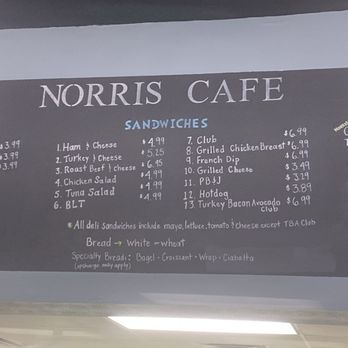 NORRIS CAFE
SANDWICHES
$3.99
$3.99
$3.99
1. Ham & Cheese $4.99
2. Turkey & Cheese $5.25
3. Roast Beef & Cheese $6.45
4. Chicken Salad $4.99
5. Tuna Salad $4.99
6. BLT $4.99
7. Club $6.99
8. Grilled Chicken Breast $6.99
9. French Dip $6.99
10. Grilled Cheese $3.49
11. PB&J $3.29
12. Hotdog $3.89
13. Turkey Bacon Avocado Club $6.99
*All deli Sandwiches include mayo, lettuce, tomato & cheese except TBA Club
Bread → White - Wheat
Specialty Breads: Bagel - Croissant - Wrap - Ciabatta
(upcharge may apply)